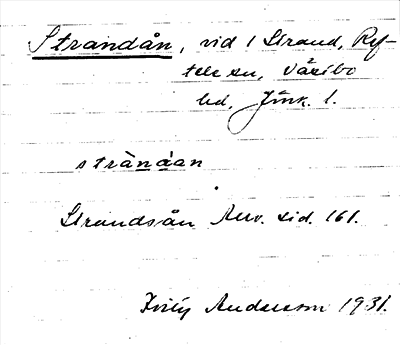 Strandån, vid 1 Strand, Ryf-
tele sn, Västbo
hd, Jönk. l.
strànd̀an
Strandsån Anv. sid. 161.
Andersson 1931.